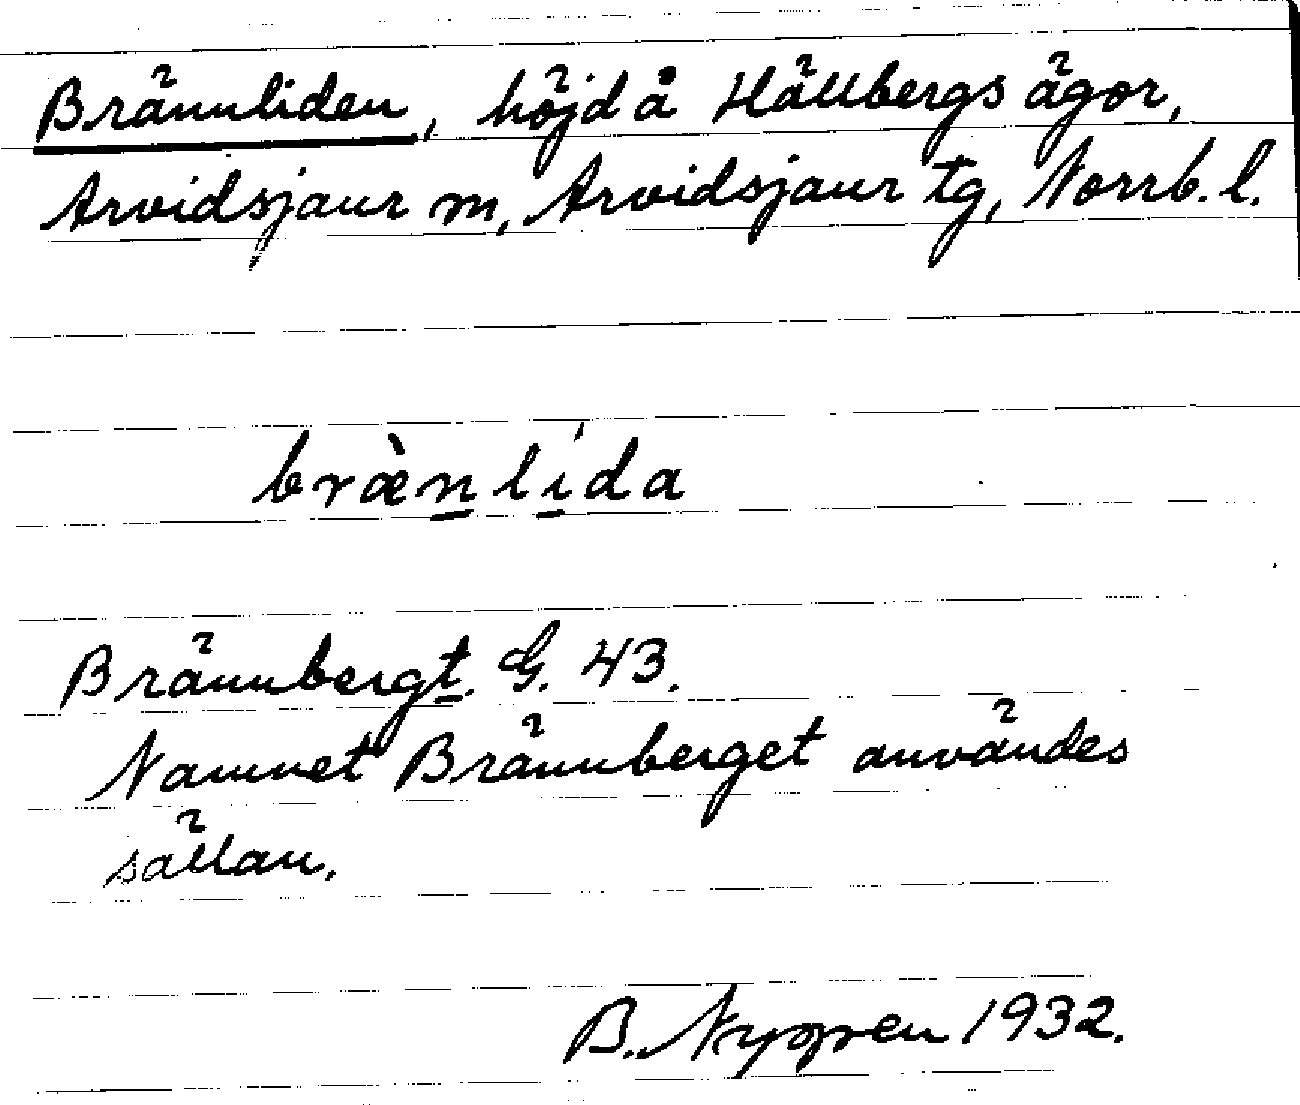 Brännliden, höjd å Hällbergs ägor,
Arvidsjaur sn, Arvidsjaur tg, Norrb. l.
bræ̀n̲lí̲da
Brännbergt̲. G. 43.
Namnet Brännberget användes
sällan.
B. Nygren 1932.